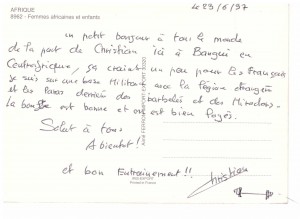 AFRIQUE
8962 - Femmes africaines et enfants
le 29/6/97
un petit bonjour à tous le monde
de la part de Christian ici à Bangui en
Centrafrique, ça craint un peu pour les Français
je suis sur une base Militaire avec la légion étrangère
et les Paras derrière des barbelés et des Miradors.
la bouffe est bonne et on est bien payés.
Salut à tous
A bientot!
et bon Entrainement!!
Christian